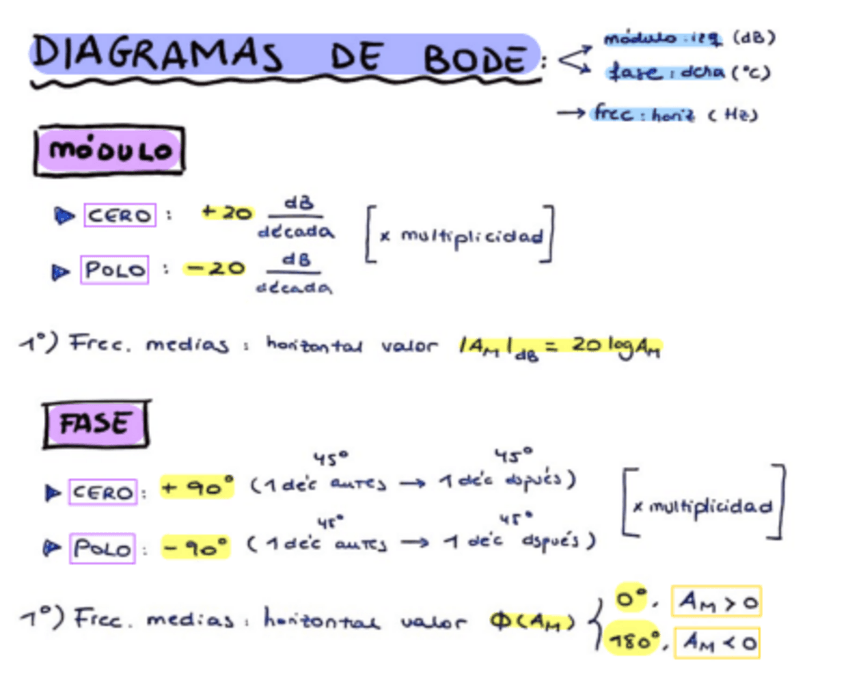 DIAGRAMAS DE BODE: módulo: izq (dB)
fase: dcha (°C)
→ frec: horiz (Hz)
MÓDULO
CERO: +20 dB/década [x multiplicidad]
POLO: -20 dB/década
1°) Frec. medias: horizontal valor |A_M|_dB = 20 log A_M
FASE
45° 45°
CERO: +90° (1 déc antes → 1 déc dspués) [x multiplicidad]
45° 45°
POLO: -90° (1 déc antes → 1 déc dspués)
1°) Frec. medias: horizontal valor Φ(A_M) { 0°, A_M > 0
180°, A_M < 0